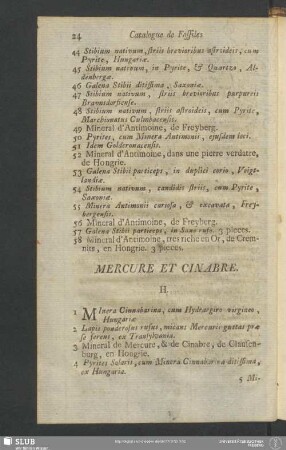 24 Catalogue de Fossiles
44 Stibium nativum, striis brevioribus astroideis, cum
Pyrite, Hungariæ.
45 Stibium nativum, in Pyrite, & Quartzo, Al-
denbergæ.
46 Galena Stibii ditissima, Saxoniæ.
47 Stibium nativum, striis brevioribus purpureis
Braunsdorfense.
48 Stibium nativum, striis astroideis, cum Pyrite,
Marchionatus Culmbacensis.
49 Mineral d'Antimoine, de Freyberg.
50 Pyrites, cum Minera Antimonii, ejusdem loci.
51 Idem Goldcronacensis.
52 Mineral d'Antimoine, dans une pierre verdatre,
de Hongrie.
53 Galena Stibii particeps, in duplici corio, Voigt-
landiæ.
54 Stibium nativum, candidis striis, cum Pyrite,
Saxoniæ.
55 Minera Antimonii curiosa, & excavata, Frey-
bergensis.
56 Mineral d'Antimoine, de Freyberg.
57 Galena Stibii particeps, in Saxo rufo. 3 pieces.
58 Mineral d'Antimoine, tres riche en Or, de Crem-
nitz, en Hongrie. 3 pieces.
MERCURE ET CINABRE.
H.
1 Minera Cinnabarina, cum Hydrargiro virgineo,
Hungariæ
2 Lapis ponderosus rufus, micans Mercurii guttas præ
se ferens, ex Transylvania.
3 Mineral de Mercure, & de Cinabre, de Clausen-
burg, en Hongrie.
4 Pyrites Solaris, cum Minera Cinnabarina ditissima,
ex Hungaria.
5 Mi-
SLUB